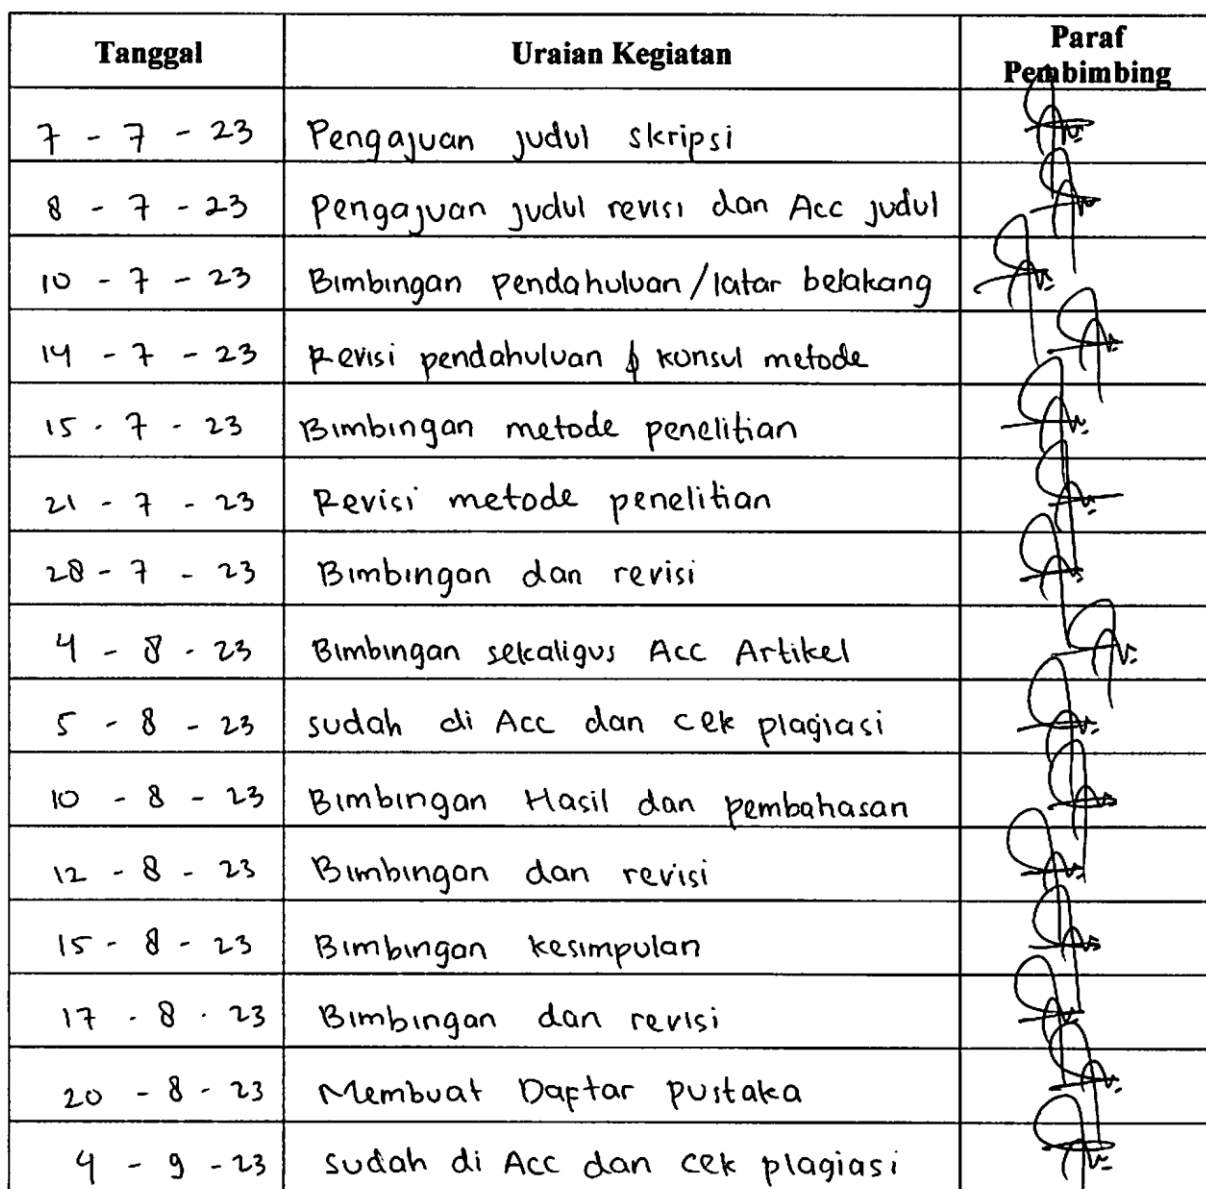 Tanggal Uraian Kegiatan Paraf Pembimbing
7 - 7 - 23 Pengajuan judul skripsi
8 - 7 - 23 Pengajuan judul revisi dan Acc judul
10 - 7 - 23 Bimbingan pendahuluan/latar belakang
14 - 7 - 23 Revisi pendahuluan & konsul metode
15 - 7 - 23 Bimbingan metode penelitian
21 - 7 - 23 Revisi metode penelitian
28 - 7 - 23 Bimbingan dan revisi
4 - 8 - 23 Bimbingan sekaligus Acc Artikel
5 - 8 - 23 sudah di Acc dan cek plagiasi
10 - 8 - 23 Bimbingan Hasil dan pembahasan
12 - 8 - 23 Bimbingan dan revisi
15 - 8 - 23 Bimbingan kesimpulan
17 - 8 - 23 Bimbingan dan revisi
20 - 8 - 23 Membuat Daftar pustaka
4 - 9 - 23 sudah di Acc dan cek plagiasi